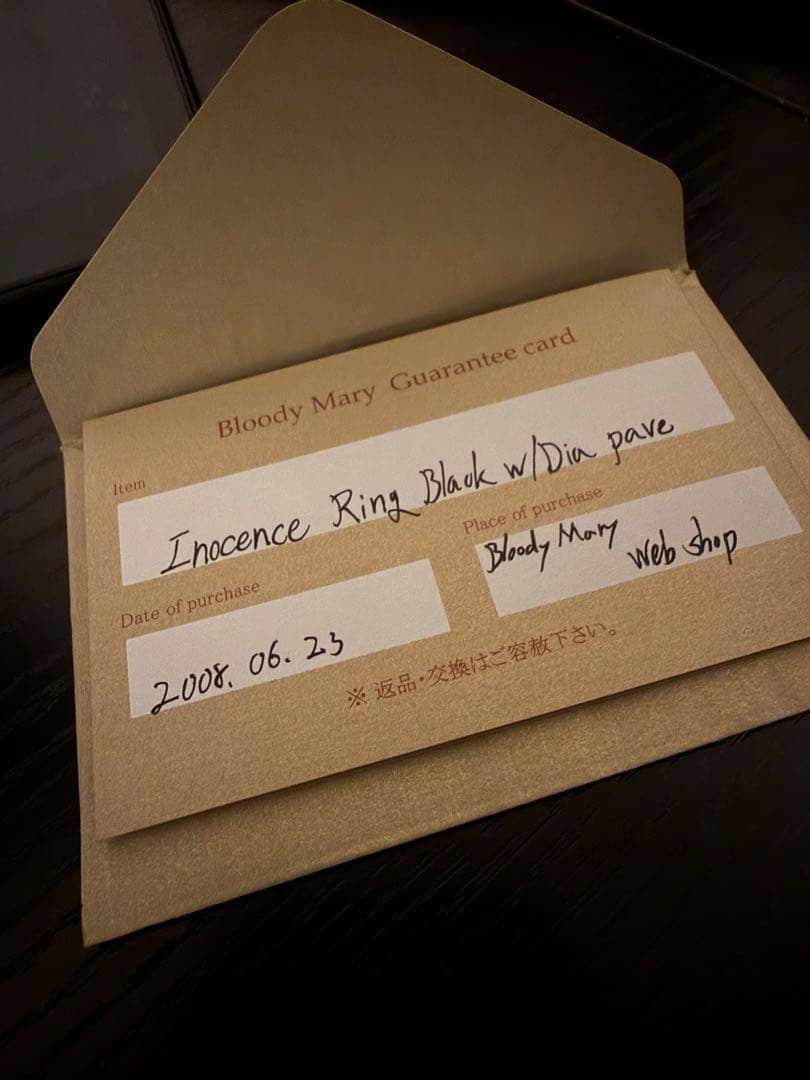 Bloody Mary Guarantee card
Item
Inocence Ring Black w/Dia pave
Date of purchase
2008. 06. 23
Place of purchase
Bloody Mary
Web shop
※ 返品・交換はご容赦下さい。